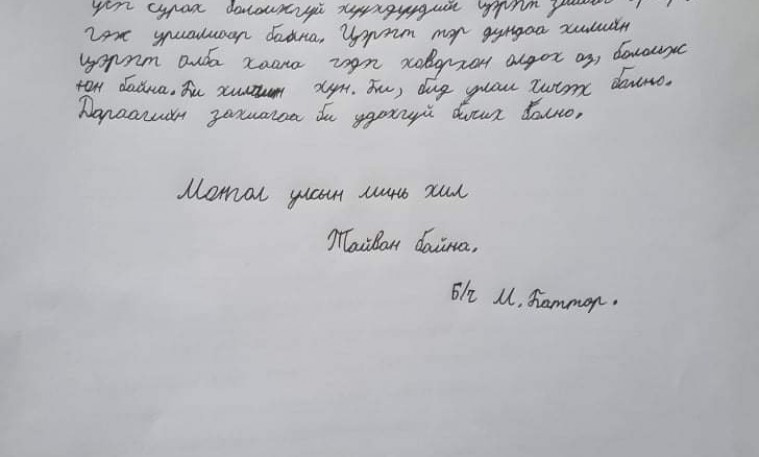 үеэ сурах боломжгүй хүүхдүүдийг цэрэгт
гэж уриалмаар байна. Цэрэгт тэр дундаа хилийн
цэрэгт алба хаана гэдэг ховорхон олдох аз, боломж
юм байна. Би хилчин хүн. Би, бид улам хичээж болно.
Дараагийн захиагаа би удахгүй бичих болно.
Монгол улсын минь хил
Тайван байна.
Б/ч М. Баттөр.